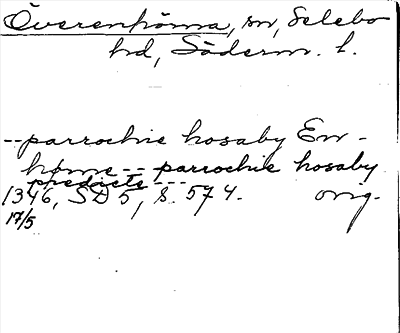 Överenhörna, sn, Selebo
hd, Söderm. l.
--parrochie hosaby En-
hørne -- parrochie hosaby
predicte ---
1346, SD 5, s. 574. orig.
17/5